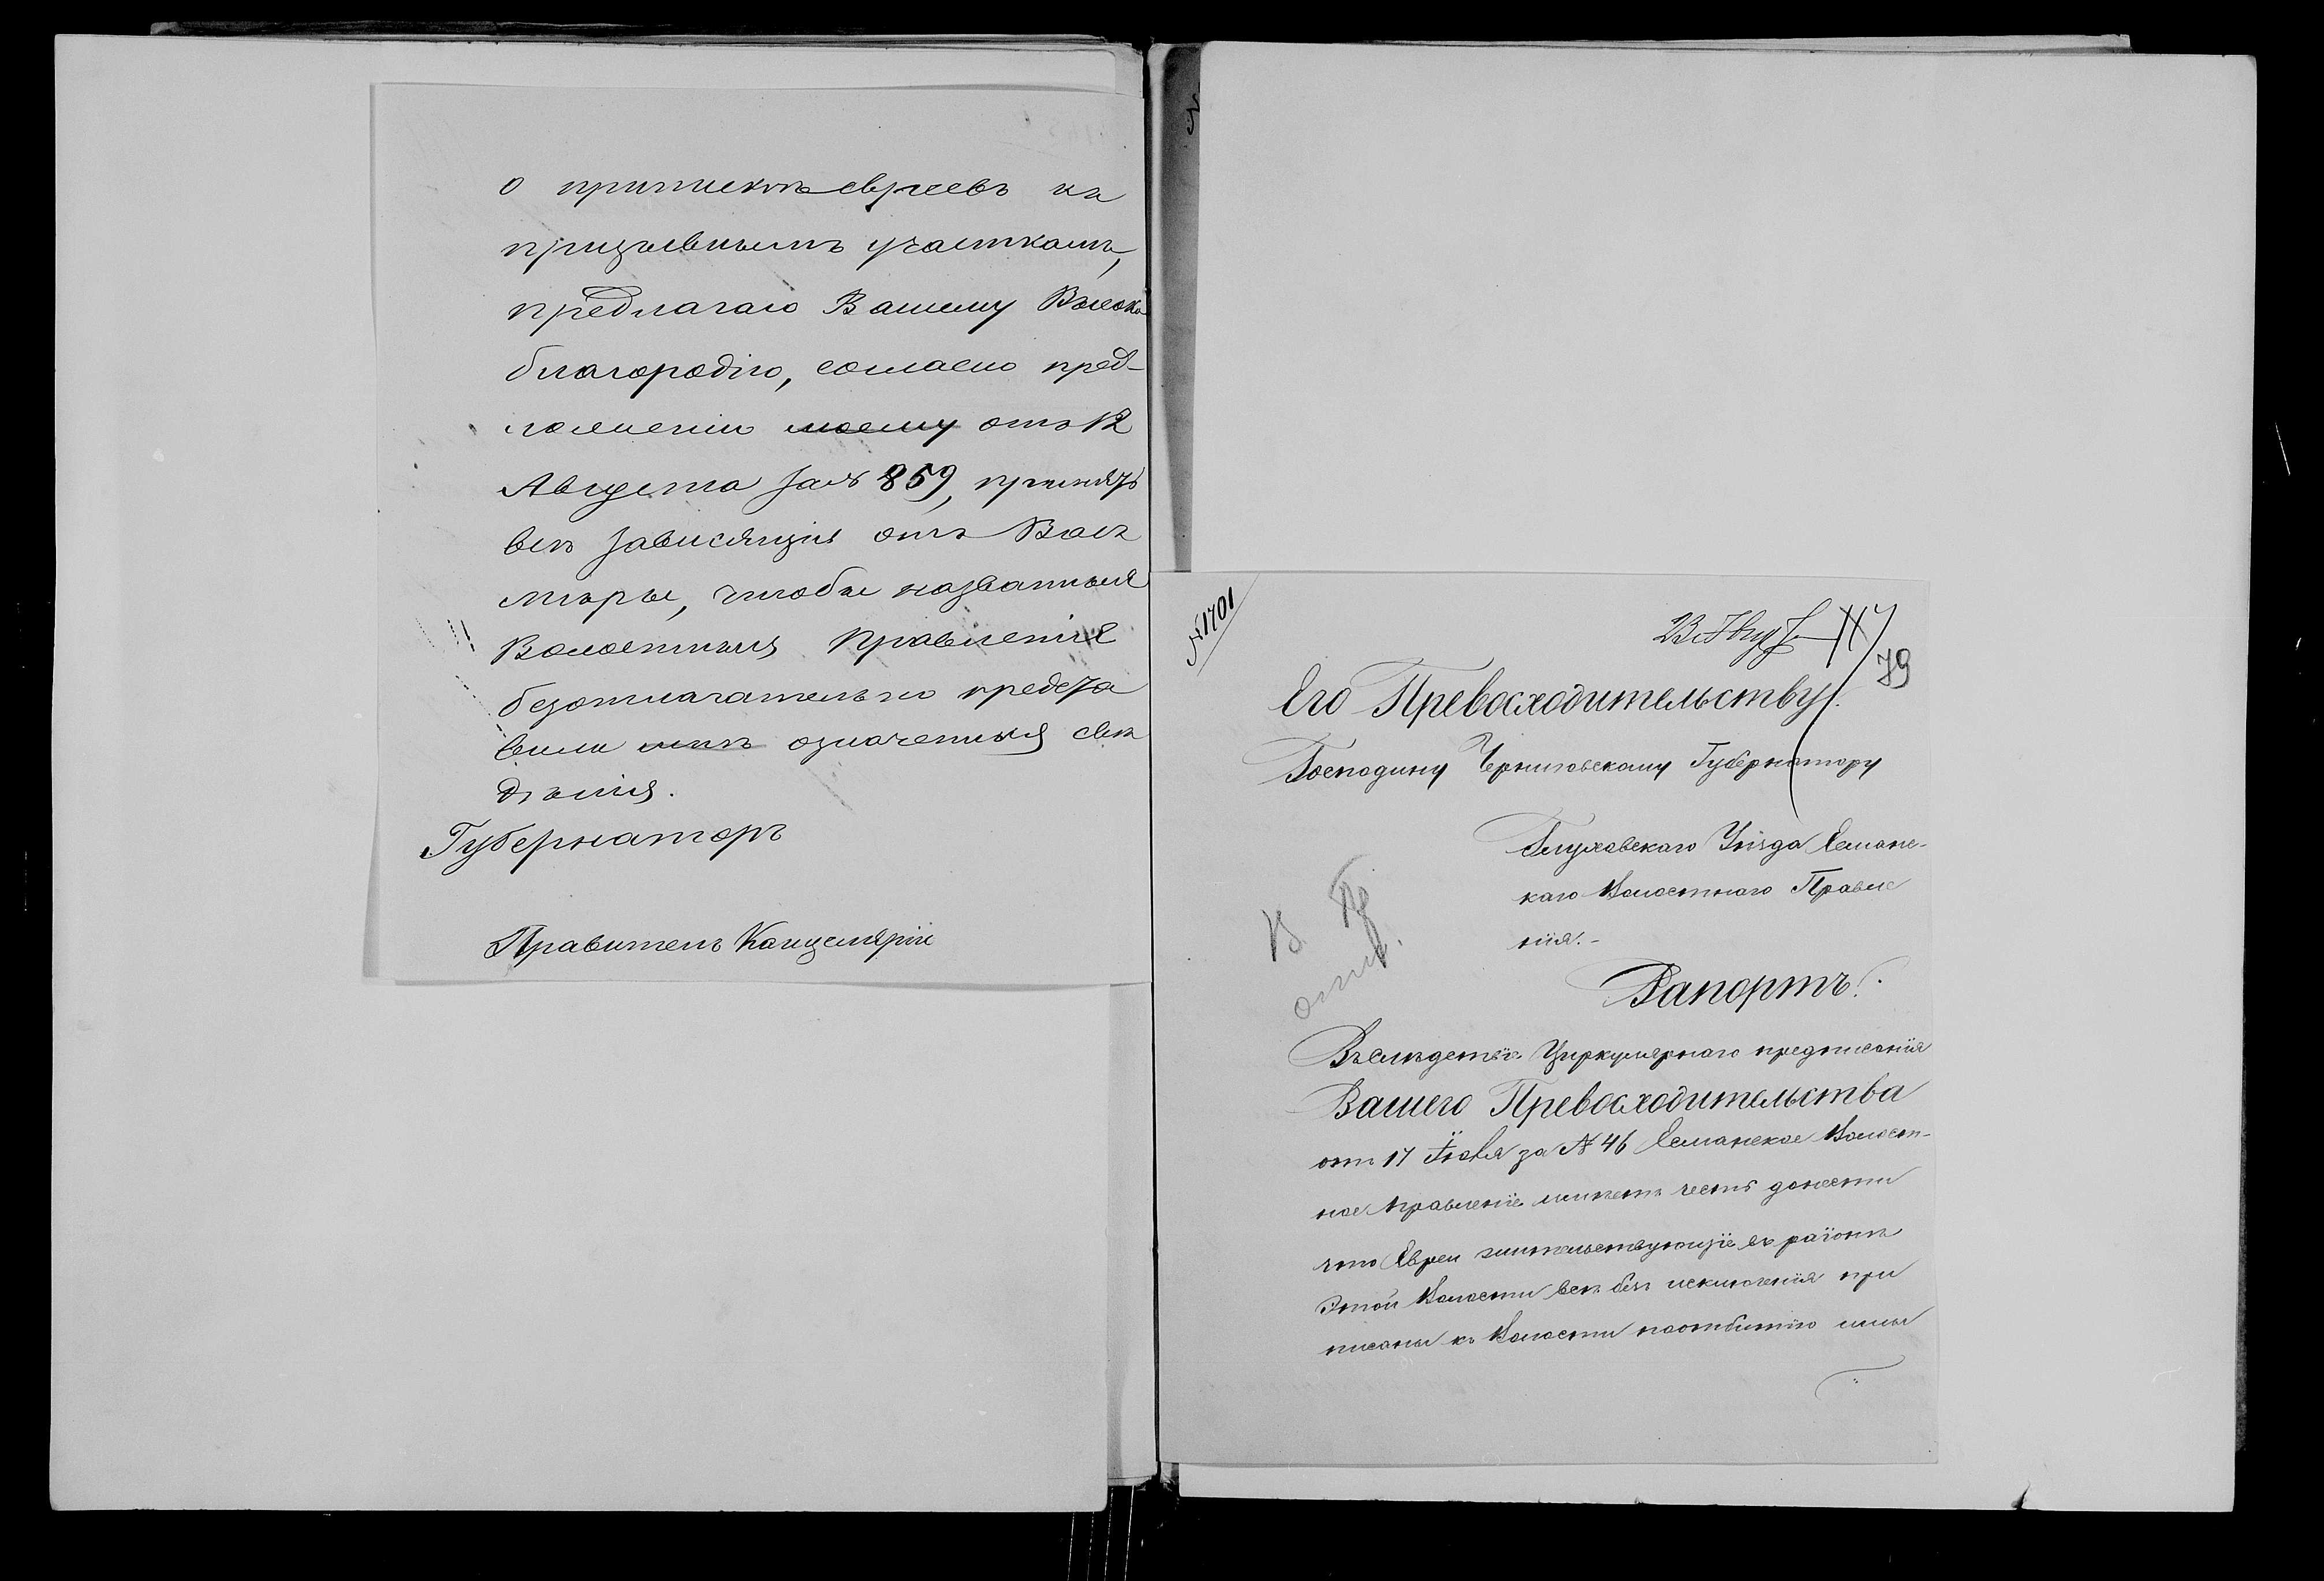 о припискѣ евреевъ къ
призывнымъ участкамъ,
предлагаю Вашему Высоко
благородію, согласно пред-
ложенію моему отъ 12
Августа за № 859, принять
всѣ зависящія отъ Васъ
мѣры, чтобы названныя
Волостныя Правленія
безотлагательно предста
вили мнѣ означенныя свѣ
дѣнія.
Губернаторъ
Правитель Канцеляріи
№ 1701
23 Авг
79
Его Превосходительству
Господину Черниговскому Губернатору
Глуховскаго Уѣзда Есманс-
каго Волостнаго Правле
нія.-
Рапортъ.
Въ слѣдствіе Циркулярнаго предписанія
Вашего Превосходительства
отъ 17 Іюля за № 46 Есманское Волост-
ное Правленіе имѣетъ честь донести
что Евреи жительствующіе въ раіонѣ
Этой Волости всѣ безъ исключенія при
писаны къ Волости по отбытію ими